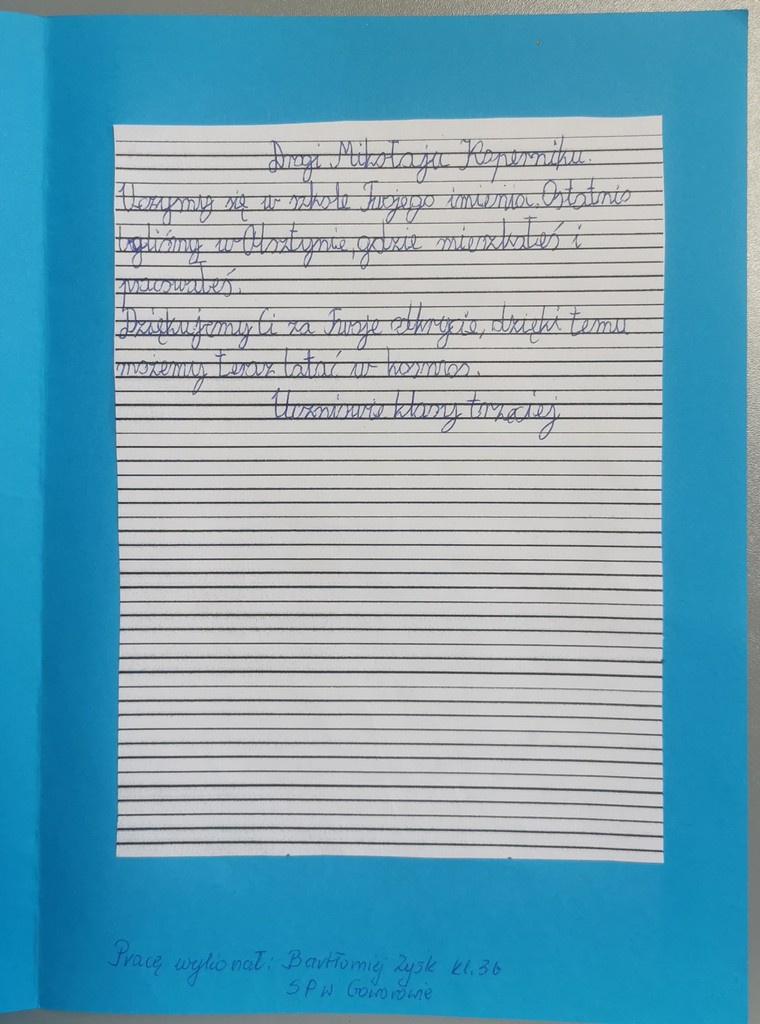 Drogi Mikołaju Koperniku.
Uczymy się w szkole Twojego imienia. Ostatnio
byliśmy w Olsztynie, gdzie mieszkałeś i
pracowałeś.
Dziękujemy Ci za Twoje odkrycie, dzięki temu
możemy teraz latać w kosmos.
Uczniowie klasy trzeciej
Pracę wykonał: Bartłomiej Zysk kl. 3b
SP w Goworowie